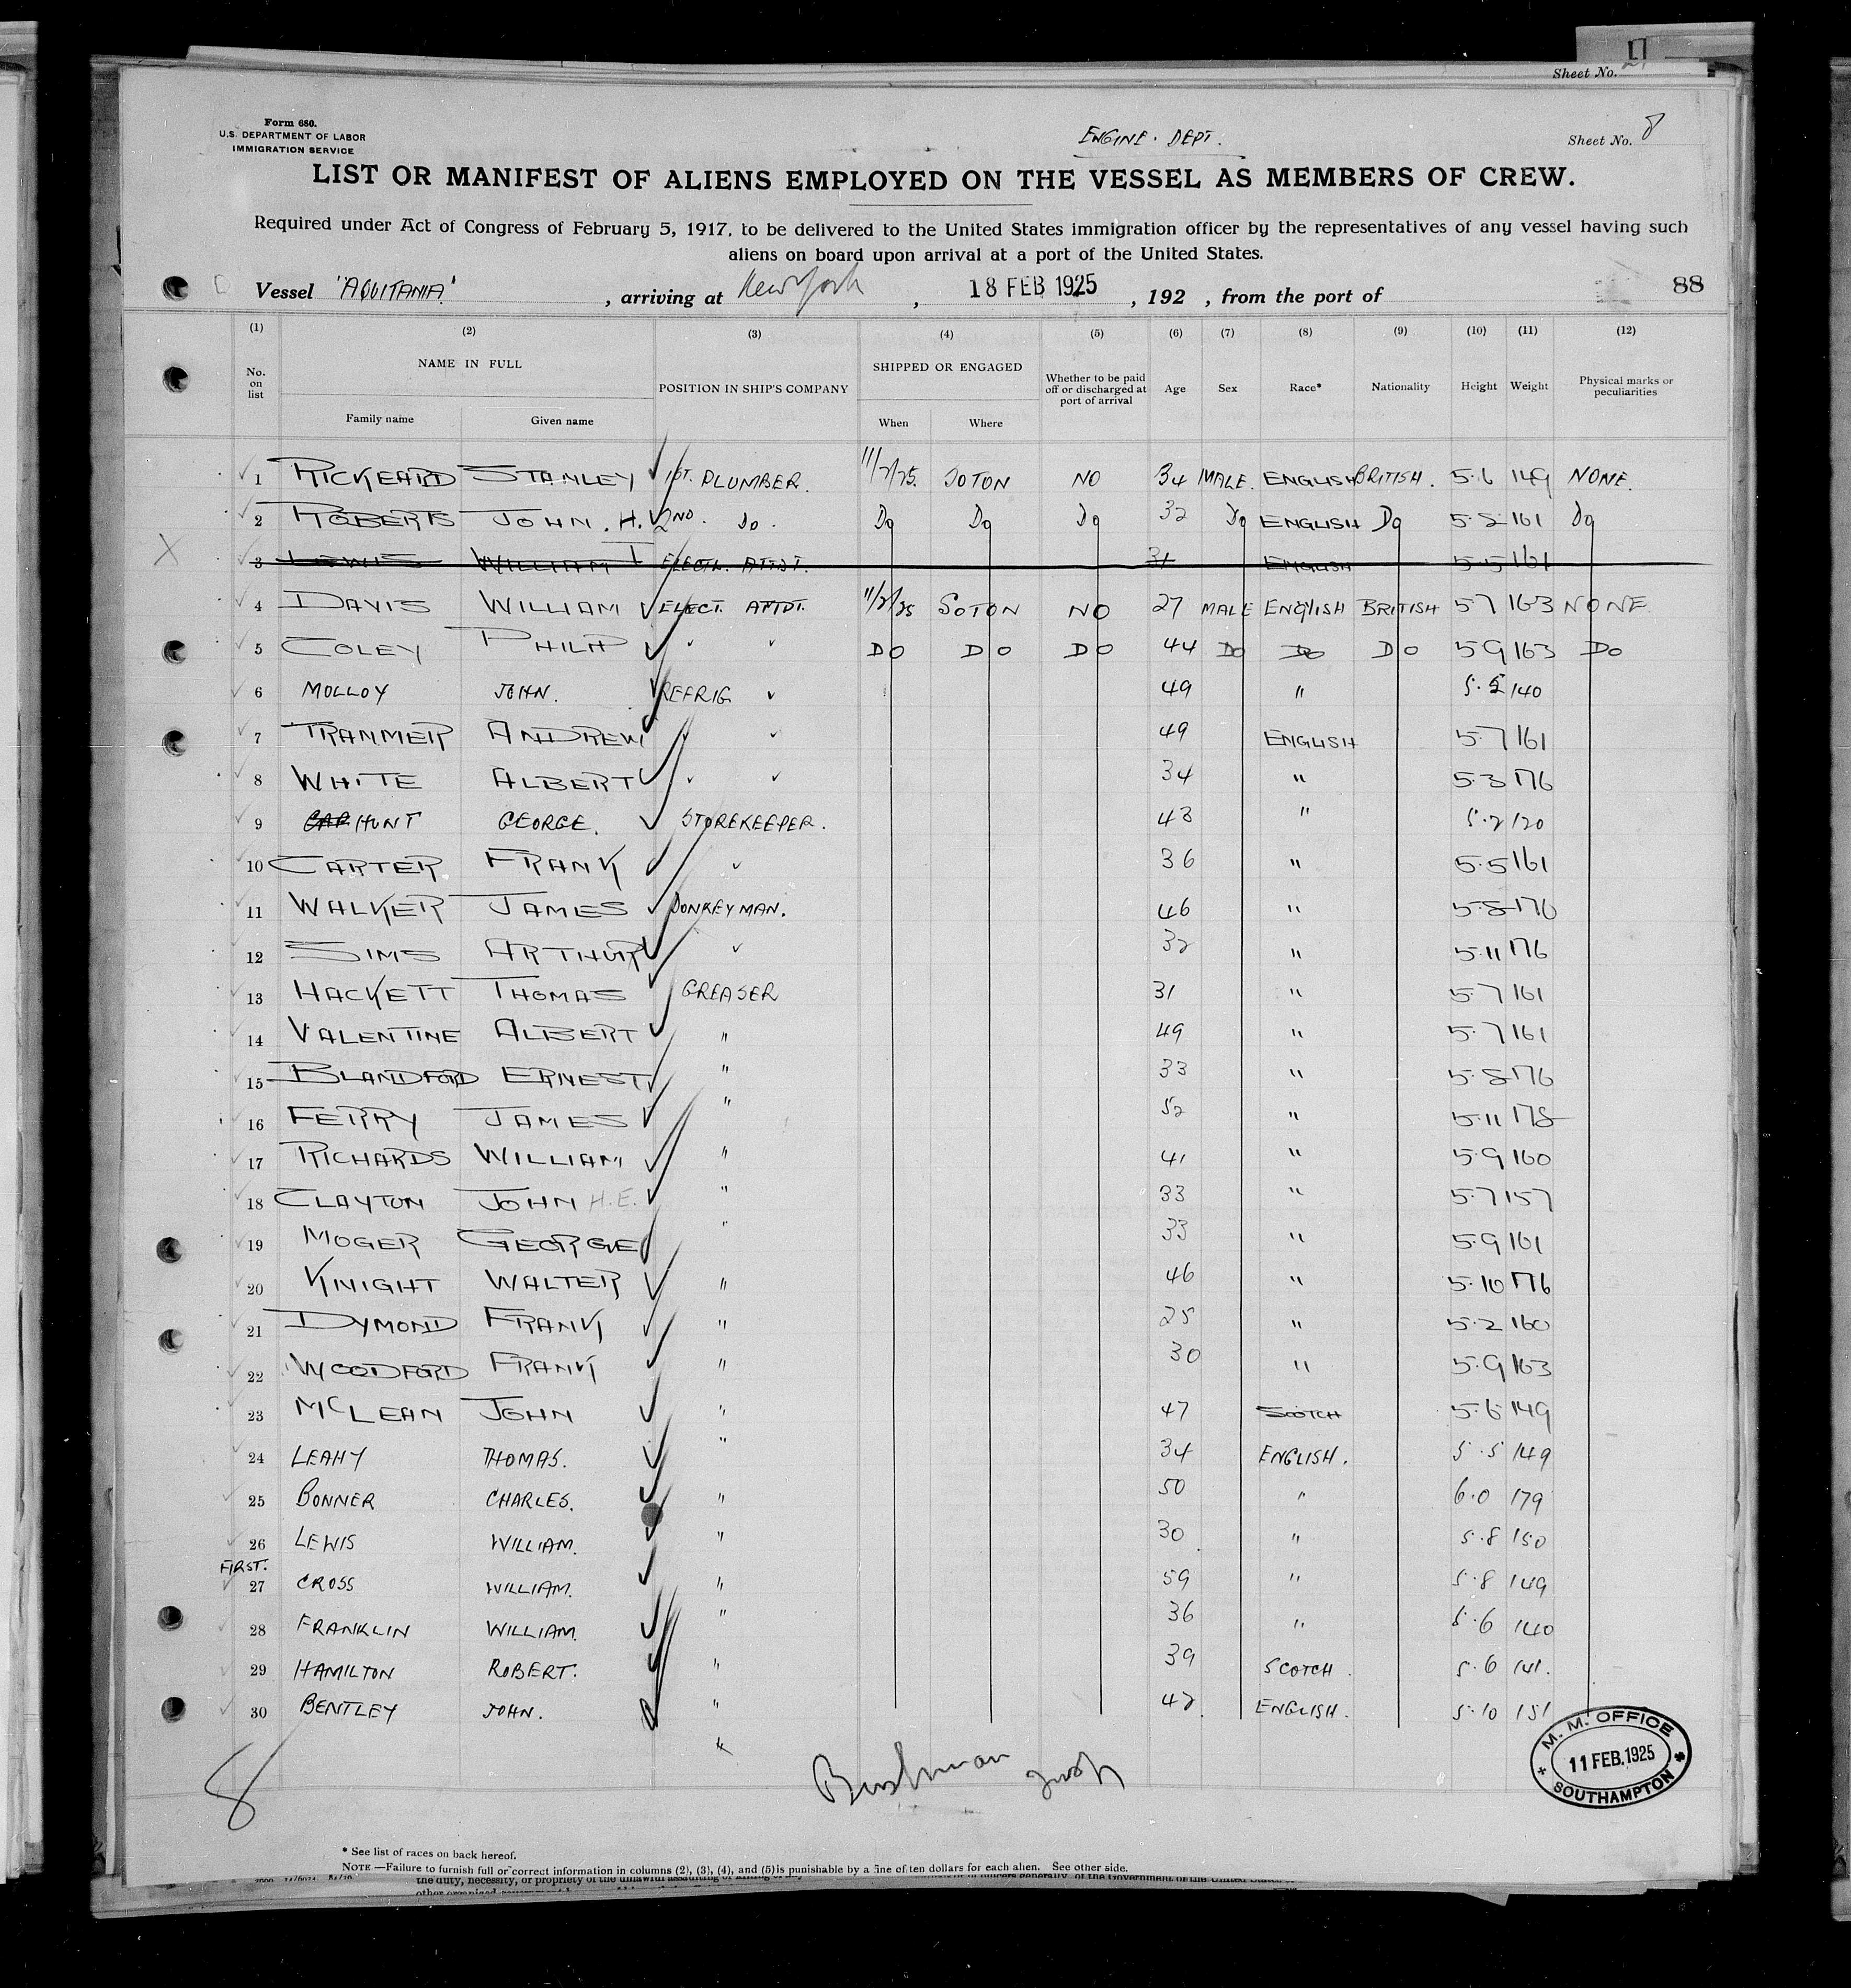 Sheet No. 21
Form 680.
U.S. DEPARTMENT OF LABOR
IMMIGRATION SERVICE
ENGINE. DEPT.
Sheet No. 8
LIST OR MANIFEST OF ALIENS EMPLOYED ON THE VESSEL AS MEMBERS OF CREW.
Required under Act of Congress of February 5, 1917, to be delivered to the United States immigration officer by the representatives of any vessel having such
aliens on board upon arrival at a port of the United States.
Vessel "AQUITANIA", arriving at New York, 18 FEB 1925, 192 , from the port of
88
(1) (2) (3) (4) (5) (6) (7) (8) (9) (10) (11) (12)
No. on list NAME IN FULL POSITION IN SHIP'S COMPANY SHIPPED OR ENGAGED Whether to be paid off or discharged at port of arrival Age Sex Race* Nationality Height Weight Physical marks or peculiarities
Family name Given name When Where
1 RICKEARD STANLEY 1ST. PLUMBER. 11/2/25. SOTON NO 34 MALE. ENGLISH BRITISH. 5.6 149 NONE.
2 ROBERTS JOHN. H. 2ND. DO. DO DO DO 32 DO ENGLISH DO 5.8 161 DO
3 LEWIS WILLIAM ELECTL. ATTDT. 31 ENGLISH 5.5 161
4 DAVIS WILLIAM ELECT. ATTDT. 11/2/25 SOTON NO 27 MALE ENGLISH BRITISH 5.7 163 NONE.
5 COLEY PHILIP " " DO DO DO 44 DO DO DO 5.9 163 DO
6 MOLLOY JOHN. REFRIG " 49 " 5.5 140
7 TRANMER ANDREW " " 49 ENGLISH 5.7 161
8 WHITE ALBERT " " 34 " 5.3 176
9 CAR HUNT GEORGE. STOREKEEPER. 43 " 5.2 120
10 CARTER FRANK " 36 " 5.5 161
11 WALKER JAMES DONKEYMAN. 46 " 5.8 176
12 SIMS ARTHUR " 32 " 5.11 176
13 HACKETT THOMAS GREASER 31 " 5.7 161
14 VALENTINE ALBERT " 49 " 5.7 161
15 BLANDFORD ERNEST " 33 " 5.8 176
16 FERRY JAMES " 52 " 5.11 178
17 RICHARDS WILLIAM " 41 " 5.9 160
18 CLAYTON JOHN H.E. " 33 " 5.7 157
19 MOGER GEORGE " 33 " 5.9 161
20 KNIGHT WALTER " 46 " 5.10 176
21 DYMOND FRANK " 25 " 5.2 160
22 WOODFORD FRANK " 30 " 5.9 163
23 MCLEAN JOHN " 47 SCOTCH 5.6 149
24 LEAHY THOMAS. " 34 ENGLISH. 5.5 149
25 BONNER CHARLES. " 50 " 6.0 179
26 LEWIS WILLIAM. " 30 " 5.8 150
FIRST.
27 CROSS WILLIAM. " 59 " 5.8 149
28 FRANKLIN WILLIAM. " 36 " 5.6 140
29 HAMILTON ROBERT. " 39 SCOTCH. 5.6 141.
30 BENTLEY JOHN. " 42. ENGLISH. 5.10 151
"
8
M. M. OFFICE
11 FEB. 1925
SOUTHAMPTON
* See list of races on back hereof.
NOTE.—Failure to furnish full or correct information in columns (2), (3), (4), and (5) is punishable by a fine of ten dollars for each alien. See other side.
the duty, necessity, or propriety of the unlawful assaulting or killing of any